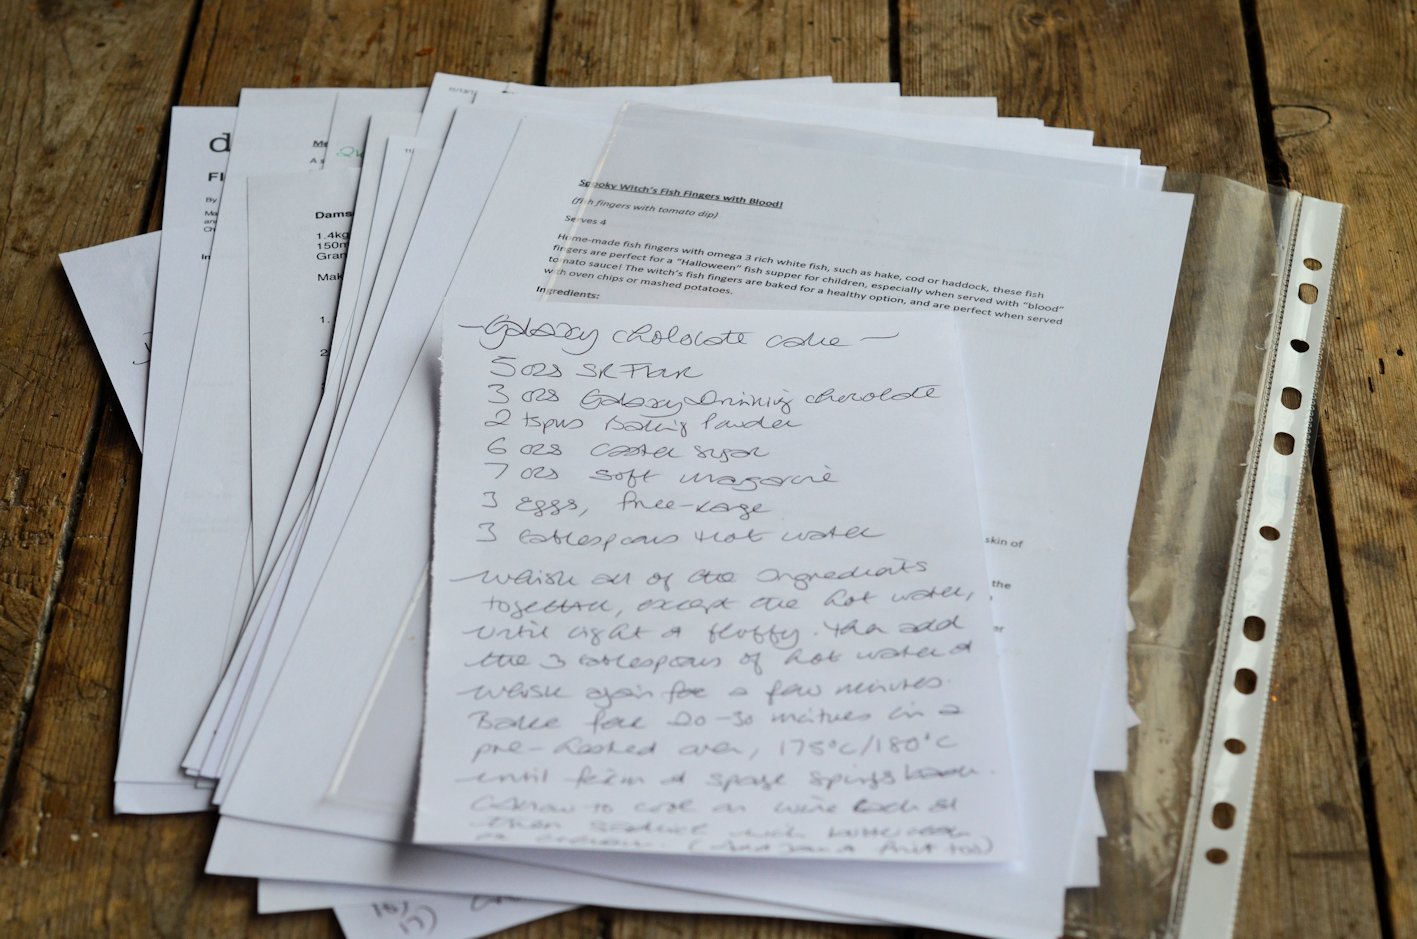 d
Fl
By
Ma
an
Ch
In
Me
A s
Dams
1.4kg
150m
Gran
Mak
1.
2
11/13/1
Spooky Witch's Fish Fingers with Blood!
(fish fingers with tomato dip)
Serves 4
Home-made fish fingers with omega 3 rich white fish, such as hake, cod or haddock, these fish
fingers are perfect for a "Halloween" fish supper for children, especially when served with "blood"
tomato sauce! The witch's fish fingers are baked for a healthy option, and are perfect when served
with oven chips or mashed potatoes.
Ingredients:
skin of
the
er
~Galaxy chocolate cake~
5 ozs SR Flour
3 ozs Galaxy Drinking chocolate
2 tspns Baking Powder
6 ozs caster sugar
7 ozs soft margarine
3 Eggs, free-range
3 tablespoons Hot water
Whisk all of the Ingredients
together, except the hot water,
until light & fluffy. Then add
the 3 tablespoons of hot water &
whisk again for a few minutes.
Bake for 20-30 minutes in a
pre-heated oven, 175°C/180°C
until firm & sponge springs back.
Allow to cool on wire rack &
then sandwich with buttercream
or (And jam & fruit too)